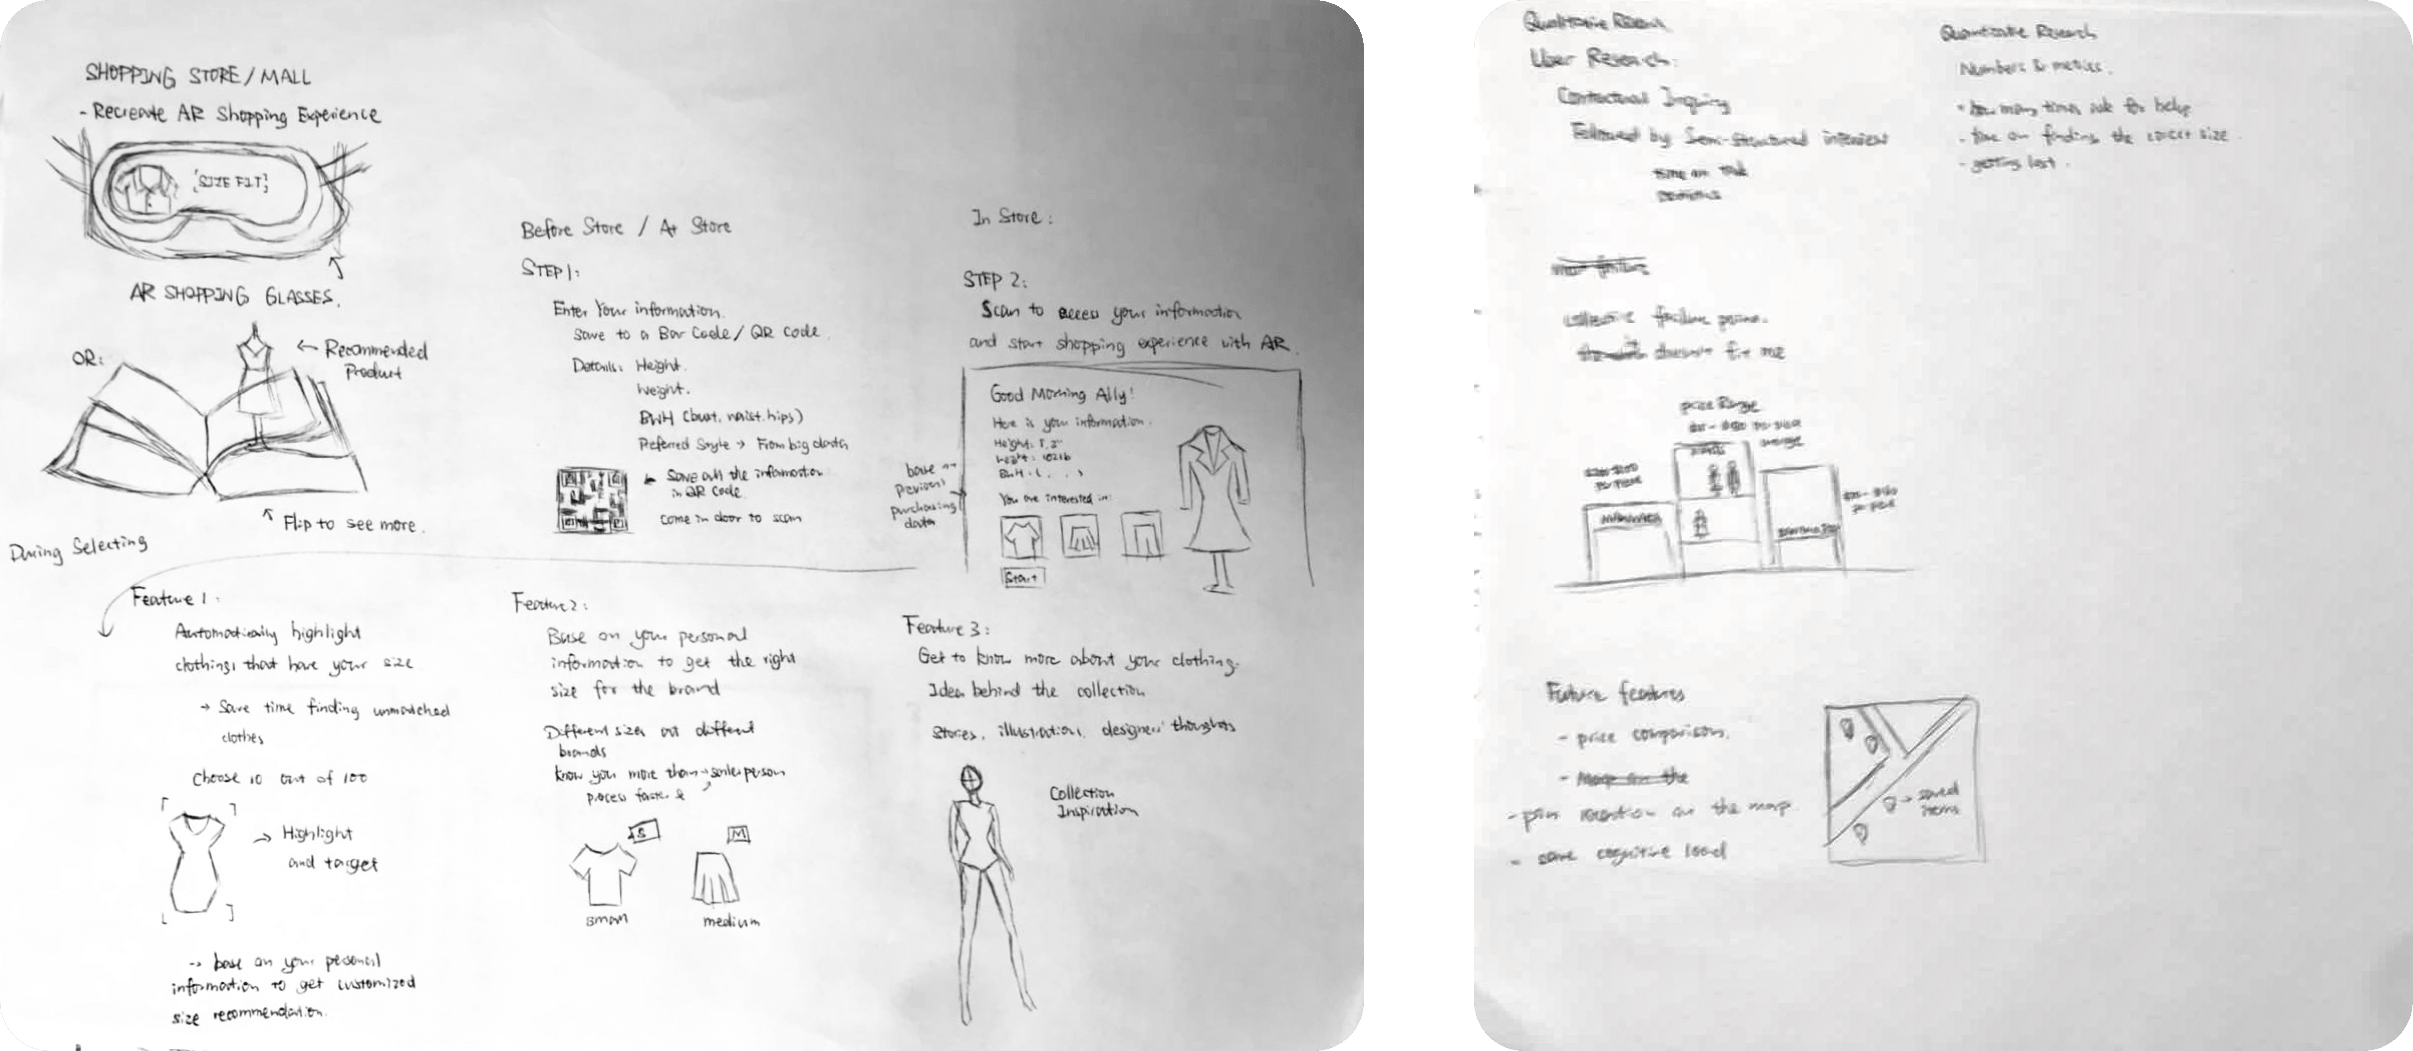 SHOPPING STORE / MALL
- Recreate AR Shopping Experience
[SIZE FIT]
AR SHOPPING GLASSES.
OR:
← Recommended
Product
Flip to see more.
Before Store / At Store
STEP 1:
Enter Your information.
Save to a Bar Code / QR code.
Details: Height.
Weight.
BWH (bust, waist, hips)
Preferred Style → From big data
Save all the information
in QR code.
Come in door to scan
In Store:
STEP 2:
Scan to access your information
and start shopping experience with AR.
Good Morning Ally!
Here is your information.
Height: 5'2"
Weight: 102 lb
BWH: (. . . )
You are interested in:
Start
base on
previous
purchasing
data
During Selecting
Feature 1:
Automatically highlight
clothings that have your size
→ Save time finding unmatched
clothes
Choose 10 out of 100
→ Highlight
and target
→ base on your personal
information to get customized
size recommendation.
Feature 2:
Base on your personal
information to get the right
size for the brand
Different sizes at different
brands
know you more than salesperson
process faster &
S
M
small
medium
Feature 3:
Get to know more about your clothing.
Idea behind the collection
Stories, illustrations, designers' thoughts
Collection
Inspiration
Qualitative Research
User Research:
Contextual Inquiry
Followed by Semi-structured interview
time on task
Quantitative Research
Numbers & metrics.
- how many times ask for help
- time on finding the correct size.
- getting lost.
failure
failure points.
doesn't fit me
price Range
average
Future features
- price comparison.
- Map on the
- pin location on the map.
- save cognitive load
→ saved
items